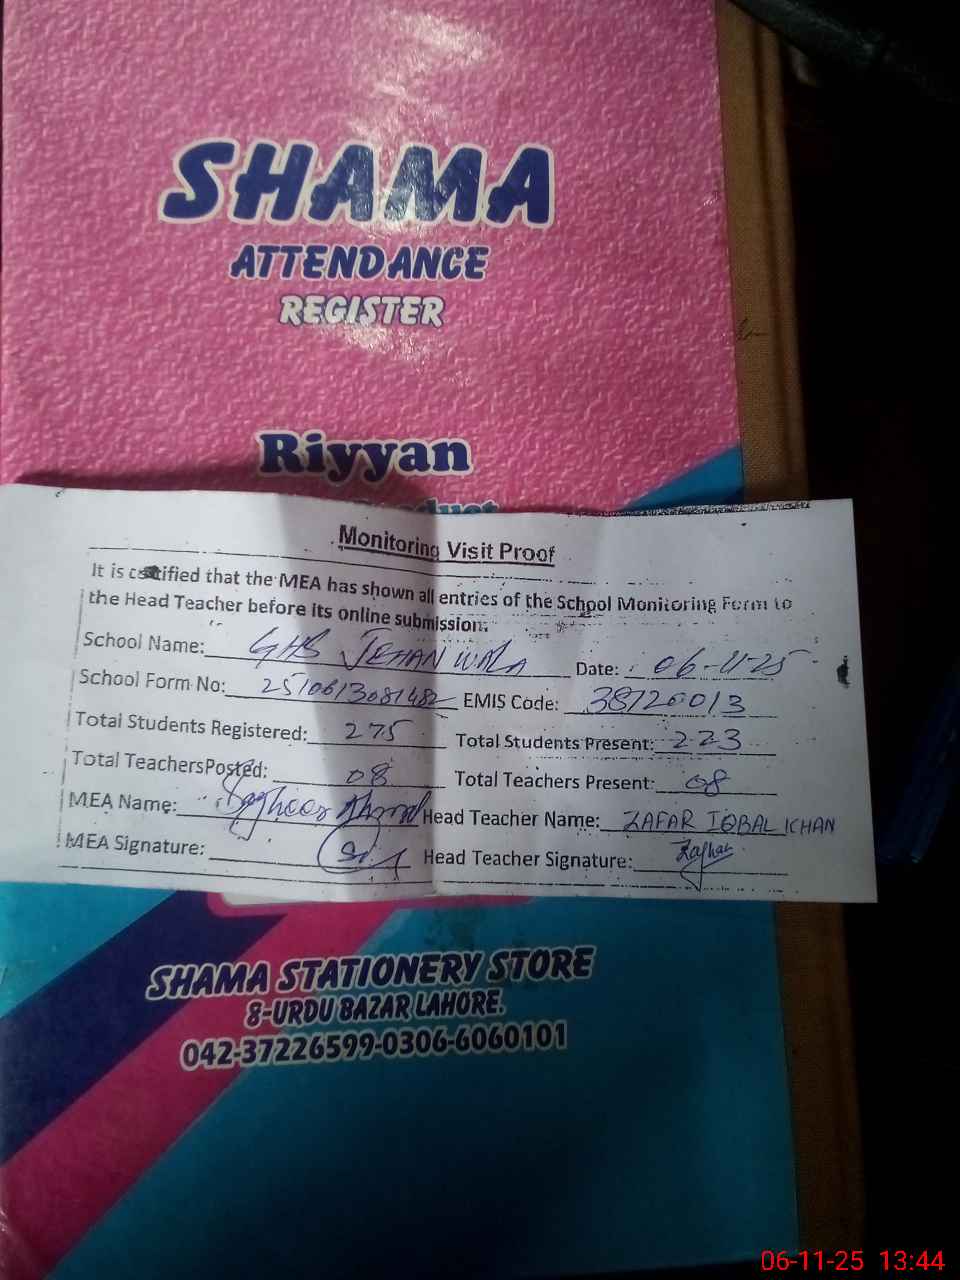 SHAMA
ATTENDANCE
REGISTER
Riyyan
Monitoring Visit Proof
It is certified that the MEA has shown all entries of the School Monitoring Form to
the Head Teacher before its online submission.
School Name: GHS JEHAN WALA Date: 06-11-25
School Form No: 2510613081482 EMIS Code: 38120013
Total Students Registered: 275 Total Students Present: 223
Total TeachersPosted: 08 Total Teachers Present: 08
MEA Name: Ahmad Head Teacher Name: ZAFAR IQBAL KHAN
MEA Signature: Head Teacher Signature:
SHAMA STATIONERY STORE
8-URDU BAZAR LAHORE.
042-37226599-0306-6060101
06-11-25 13:44